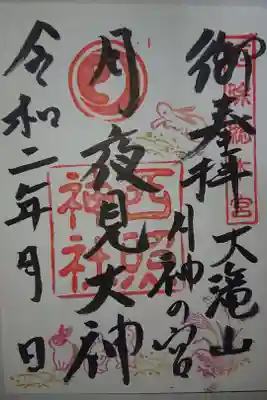 御奉拝
大滝山
月神の宮
月夜見大神
西照
神社
令和二年月日